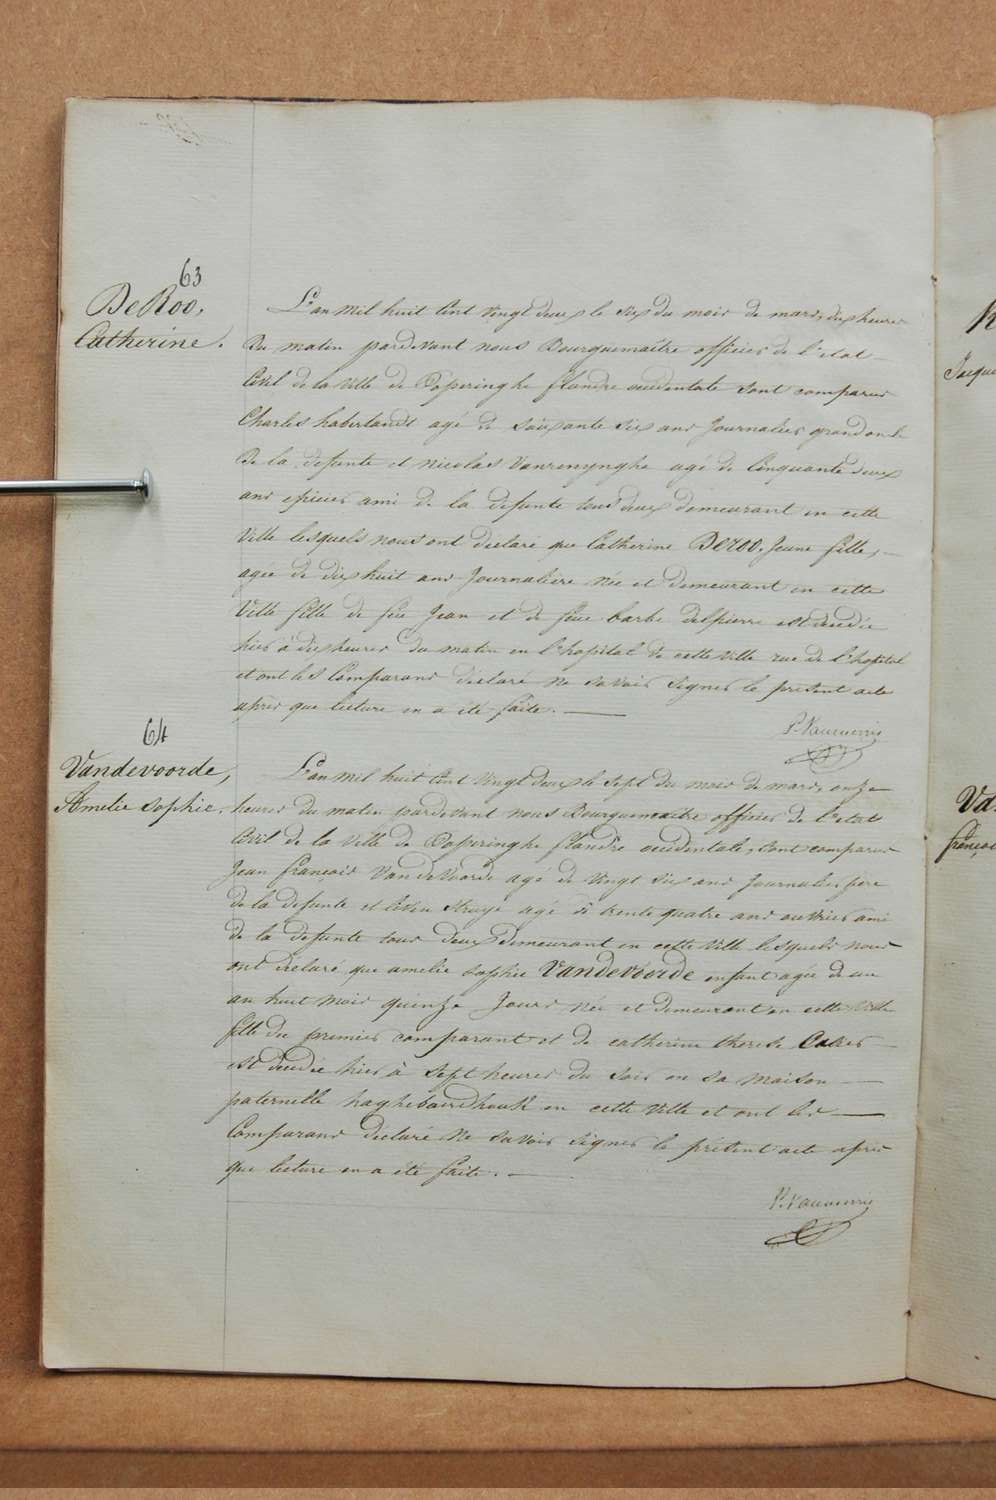 63
De Roo,
Catherine.
L'an mil huit cent vingt deux le six du mois de mars, dix heures
Du matin pardevant nous Bourguemaitre officier de l'etat
Civil de la Ville de Poperinghe flandre occidentale sont comparus
Charles haberlandt agé de soixante six ans Journalier grand oncle
De la defunte et Nicolas Vanrenynghe agé de Cinquante deux
ans epicier ami de la defunte tous deux demeurant en cette
Ville lesquels nous ont declaré que Catherine DEROO, Jeune fille,
agée de dix huit ans Journaliere née et demeurant en cette
Ville fille de feu Jean et de feue barbe delpierre est decedée
hier à dix heures du matin en l'hopital de cette ville rue de l'hopital
et ont les Comparans declaré ne savoir signer le present acte
après que lecture en a été faite.
64
Vandevoorde,
Amelie Sophie.
L'an mil huit cent vingt deux le sept du mois de mars, onze
heures du matin pardevant nous Bourguemaitre officier de l'etat
Civil de la Ville de Poperinghe flandre occidentale, sont comparus
Jean françois Vandevoorde agé de vingt six ans Journalier pere
de la defunte et Livin Struye agé de trente quatre ans ouvrier ami
de la defunte tous deux demeurant en cette Ville lesquels nous
ont declaré que amelie sophie Vandevoorde enfant agée de un
an huit mois quinze Jours née et demeurant en cette Ville
fille du premier comparant et de catherine therese
est decedée hier à sept heures du soir en sa maison
paternelle en cette Ville et ont les
Comparans declaré ne savoir signer le présent acte après
que lecture en a été faite.
Jacque
Va
françoi